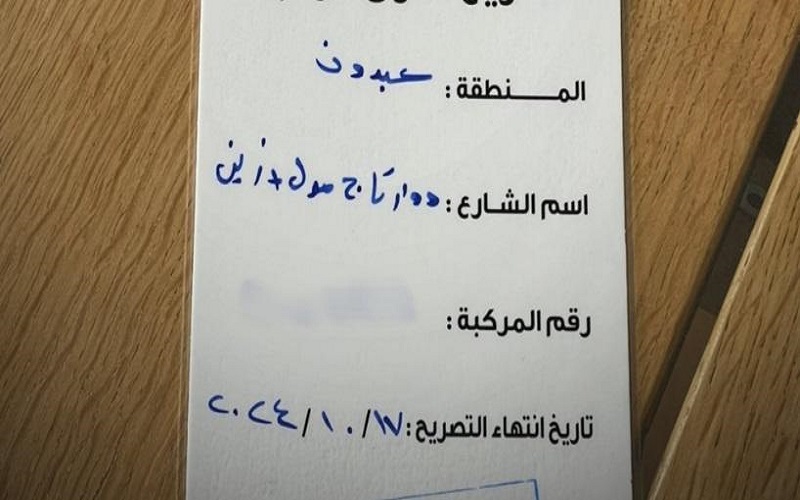 المنطقة : عبدون
اسم الشارع : دوار تاج مول + زين
رقم المركبة :
تاريخ انتهاء التصريح : ١٧/١٠/٢٠٢٤